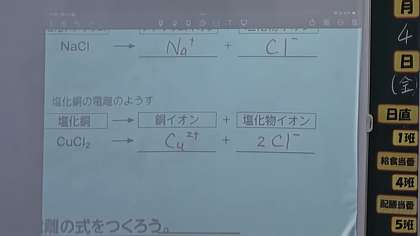 NaCl → Na⁺ + Cl⁻
塩化銅の電離のようす
塩化銅 → 銅イオン + 塩化物イオン
CuCl₂ → Cu²⁺ + 2Cl⁻
離の式をつくろう。
月
4
日
(金)
日直
1班
給食当番
4班
配膳当番
5班